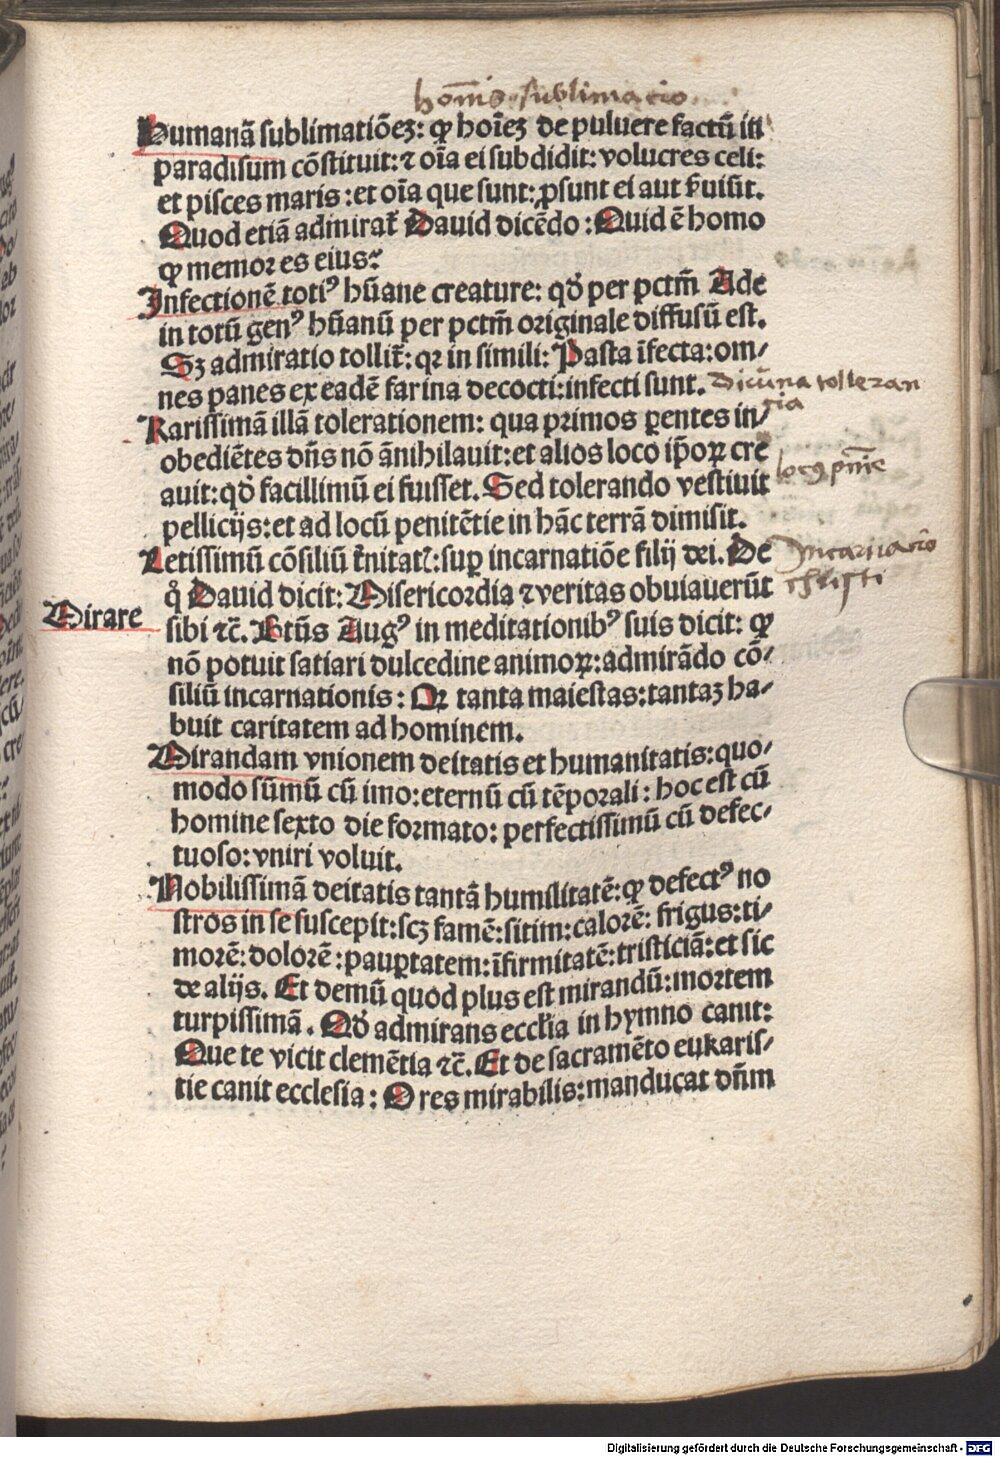 homīs sublimacio
Humanā sublimatiōeꝫ: ꝙ hoīeꝫ de puluere factū in
paradisum cōstituit: ⁊ oīa ei subdidit: volucres celi:
et pisces maris: et oīa que sunt: ꝓsunt ei aut ẜuiūt.
Quod etiā admirat̄ Dauid dicēdo: Quid ē homo
ꝙ memor es eius?
Infectionē totiꝰ hūane creature: qḋ per pctm̄ Ade
in totū genꝰ hūanū per pctm̄ originale diffusū est.
Sꝫ admiratio tollit̄: qꝛ in simili: Pasta īfecta: om⸗
nes panes ex eadē farina decocti: infecti sunt.
Dicūna tolleran
cia
Rarissimā illā tolerationem: qua primos ꝑentes in⸗
obediētes dn̄s nō ānihilauit: et alios loco ip̄oꝝ cre
auit: qḋ facillimū ei fuisset. Sed tolerando vestiuit
pellicijs: et ad locū penitētie in hāc terrā dimisit.
locꝰ pn̄ie
Letissimū cōsiliū t̄nitatꝭ: suꝑ incarnatiōe filij dei. De
Incarnacio
christi
q̊ Dauid dicit: Misericordia ⁊ veritas obuiauerūt
Mirare
sibi ⁊c̄. Btūs Augꝰ in meditationibꝰ suis dicit: ꝙ
nō potuit satiari dulcedine animoꝝ: admirādo cō⸗
siliū incarnationis: Qꝛ tanta maiestas: tantaꝫ ha⸗
buit caritatem ad hominem.
Mirandam vnionem deitatis et humanitatis: quo⸗
modo sūmū cū imo: eternū cū tēporali: hoc est cū
homine sexto die formato: perfectissimū cū defec⸗
tuoso: vniri voluit.
Nobilissimā deitatis tantā humilitatē: ꝙ defectꝰ no
stros in se suscepit: scꝫ famē: sitim: calorē: frigus: ti⸗
morē: dolorē: pauꝑtatem: īfirmitatē: tristiciā: et sic
de alijs. Et demū quod plus est mirandū: mortem
turpissimā. Qḋ admirans eccl̄ia in hymno canit:
Que te vicit clemētia ⁊c̄. Et de sacramēto eukaris⸗
tie canit ecclesia: O res mirabilis: manducat dn̄m
Digitalisierung gefördert durch die Deutsche Forschungsgemeinschaft - DFG